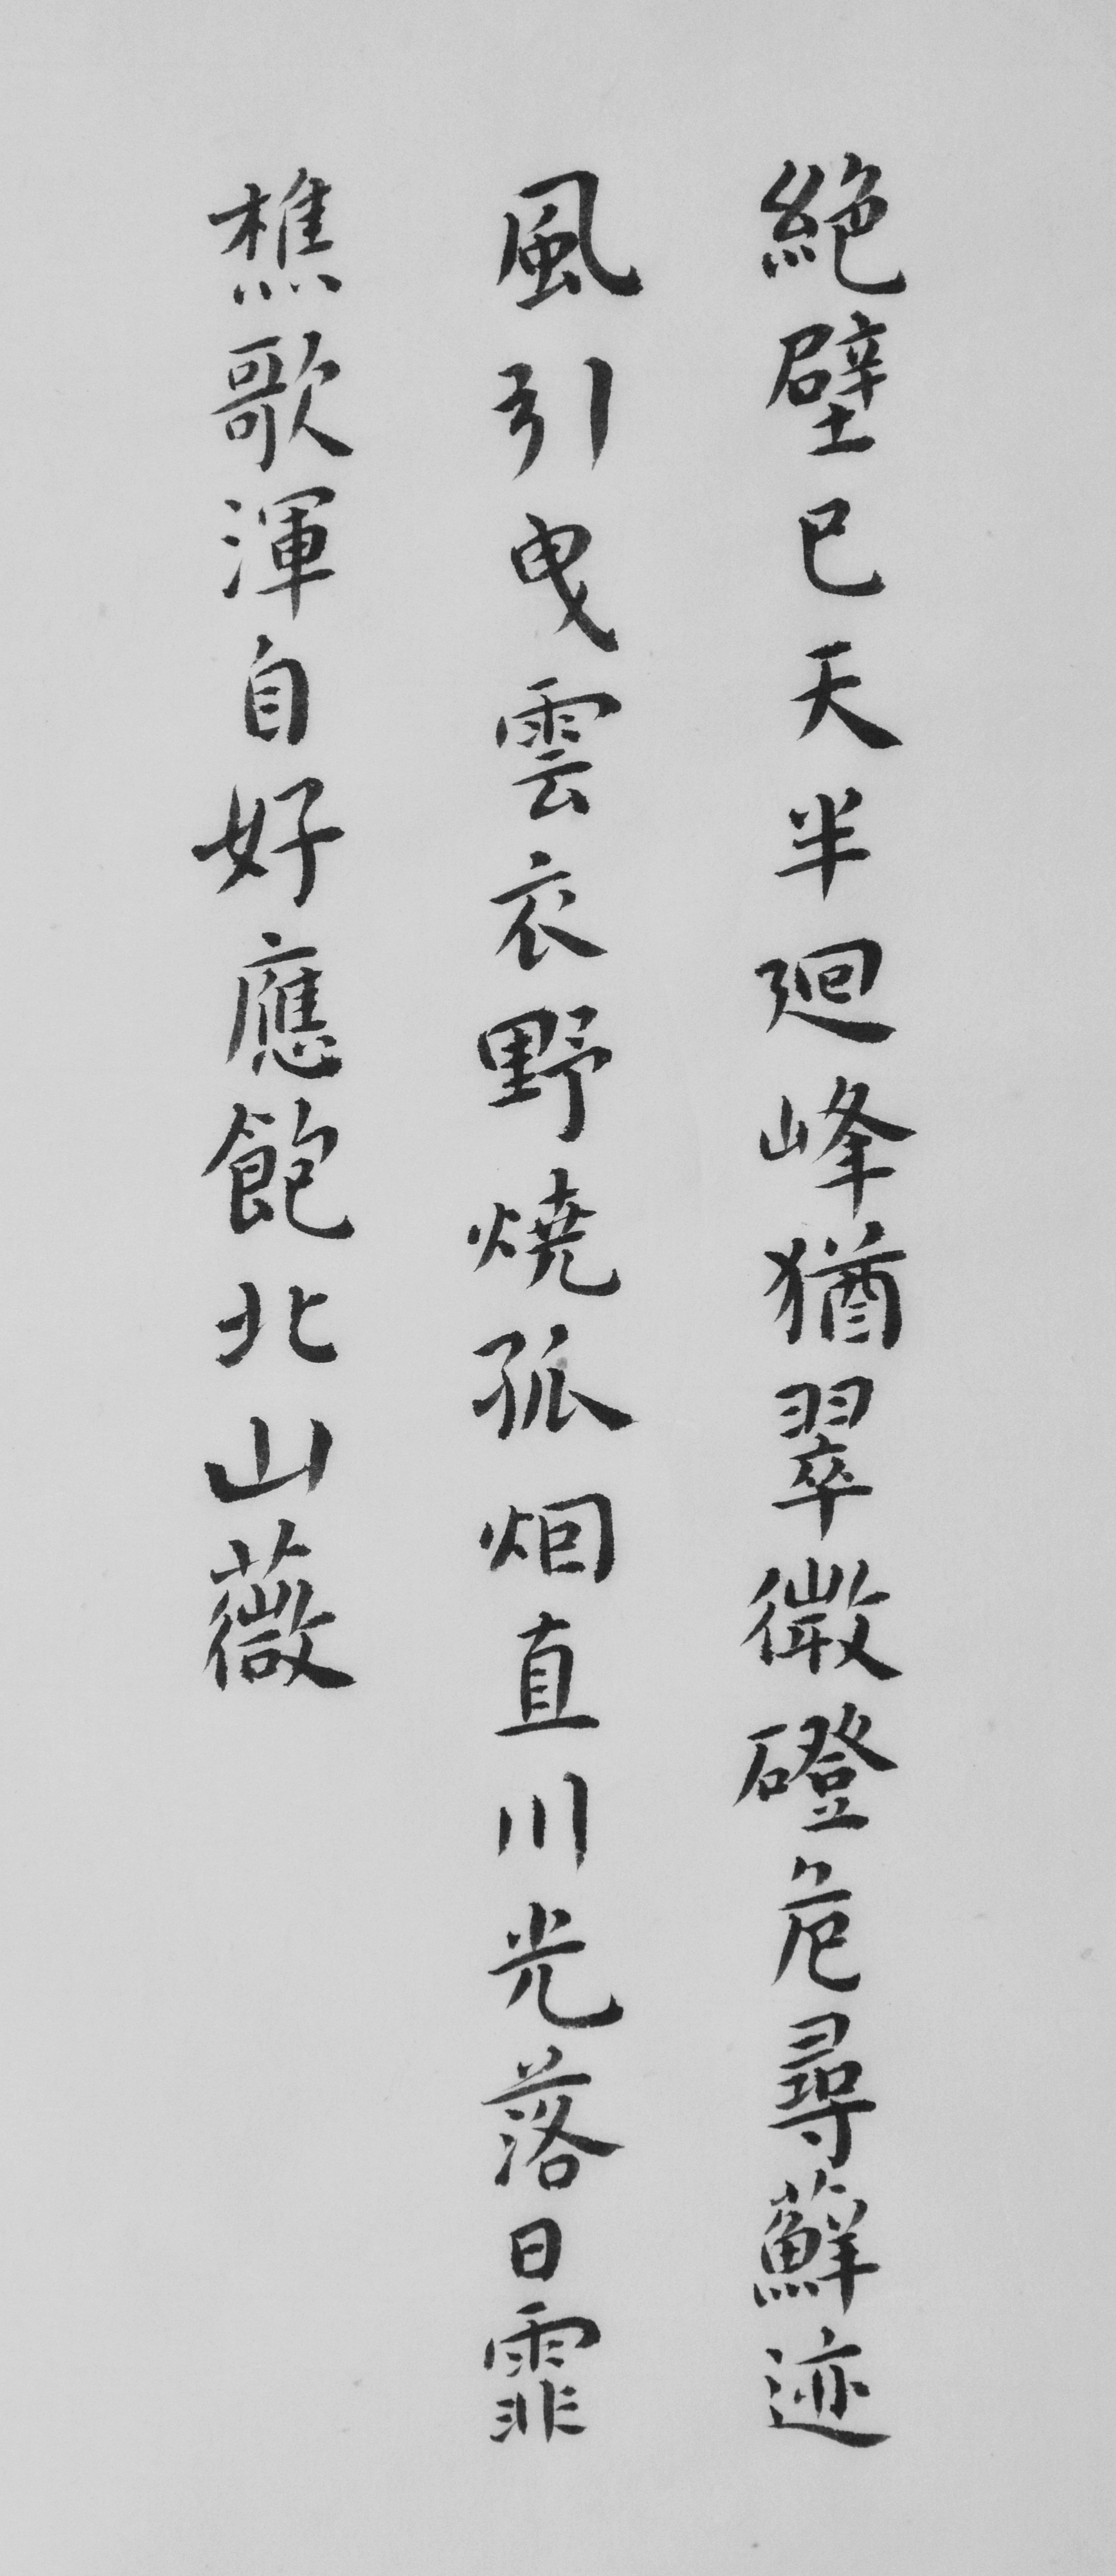 絶壁已天半廻峰猶翠微磴危尋蘚迹
風引曳雲衣野燒孤烟直川光落日霏
樵歌渾自好應飽北山薇